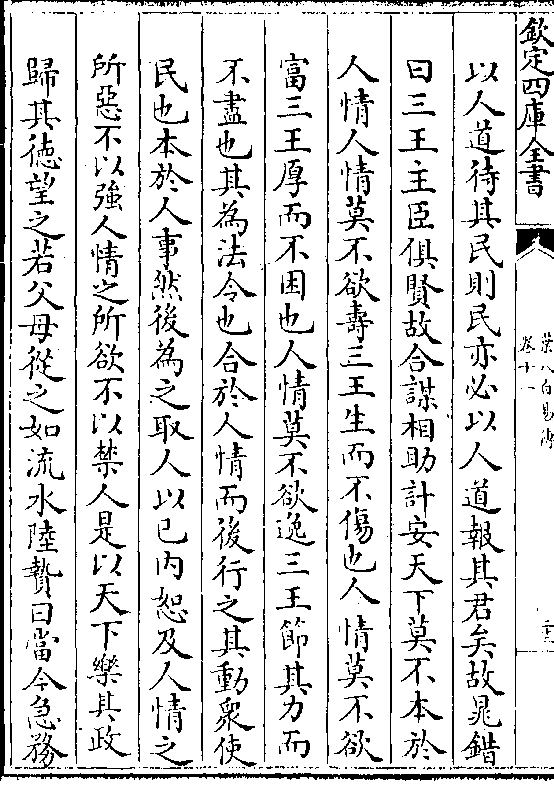 欽定四庫全書
葉八白易傳
卷十一
以人道待其民則民亦必以人道報其君矣故晁錯
曰三王主臣俱賢故合謀相助計安天下莫不本於
人情人情莫不欲壽三王生而不傷也人情莫不欲
富三王厚而不困也人情莫不欲逸三王節其力而
不盡也其為法令也合於人情而後行之其動衆使
民也本於人事然後為之取人以已内恕及人情之
所惡不以強人情之所欲不以禁人是以天下樂其政
歸其徳望之若父母從之如流水陸贄曰當今急務